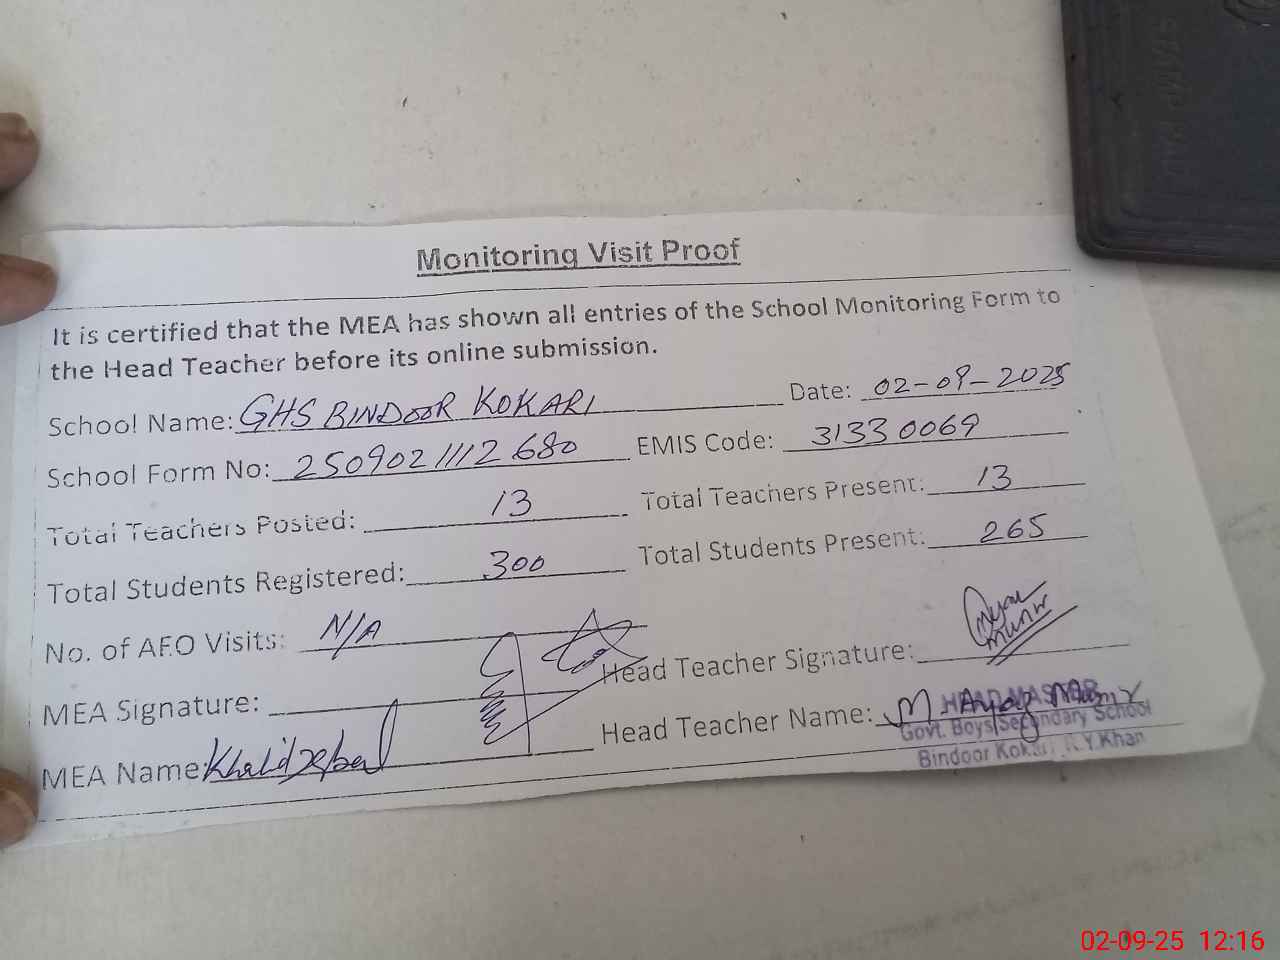 STAMP PAD
Monitoring Visit Proof
It is certified that the MEA has shown all entries of the School Monitoring Form to
the Head Teacher before its online submission.
School Name: GHS BINDOOR KOKARI Date: 02-09-2025
School Form No: 2509021112680 EMIS Code: 31330069
Total Teachers Posted: 13 Total Teachers Present: 13
Total Students Registered: 300 Total Students Present: 265
No. of AEO Visits: N/A
MEA Signature: Head Teacher Signature:
MEA Name: Khalid Iqbal Head Teacher Name: M
HEAD MASTER
Govt. Boys Secondary School
Bindoor Kokari R.Y.Khan
02-09-25 12:16